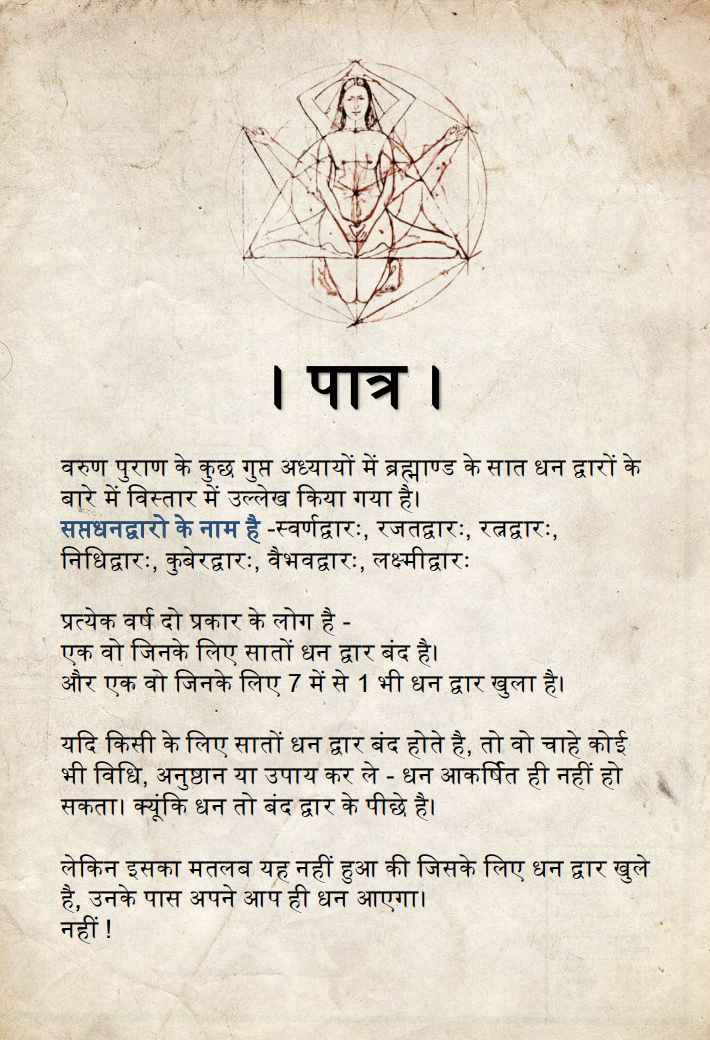 । पात्र ।
वरुण पुराण के कुछ गुप्त अध्यायों में ब्रह्माण्ड के सात धन द्वारों के
बारे में विस्तार में उल्लेख किया गया है।
सप्तधनद्वारो के नाम है -स्वर्णद्वारः, रजतद्वारः, रत्नद्वारः,
निधिद्वारः, कुबेरद्वारः, वैभवद्वारः, लक्ष्मीद्वारः
प्रत्येक वर्ष दो प्रकार के लोग है -
एक वो जिनके लिए सातों धन द्वार बंद है।
और एक वो जिनके लिए 7 में से 1 भी धन द्वार खुला है।
यदि किसी के लिए सातों धन द्वार बंद होते है, तो वो चाहे कोई
भी विधि, अनुष्ठान या उपाय कर ले - धन आकर्षित ही नहीं हो
सकता। क्यूंकि धन तो बंद द्वार के पीछे है।
लेकिन इसका मतलब यह नहीं हुआ की जिसके लिए धन द्वार खुले
है, उनके पास अपने आप ही धन आएगा।
नहीं !